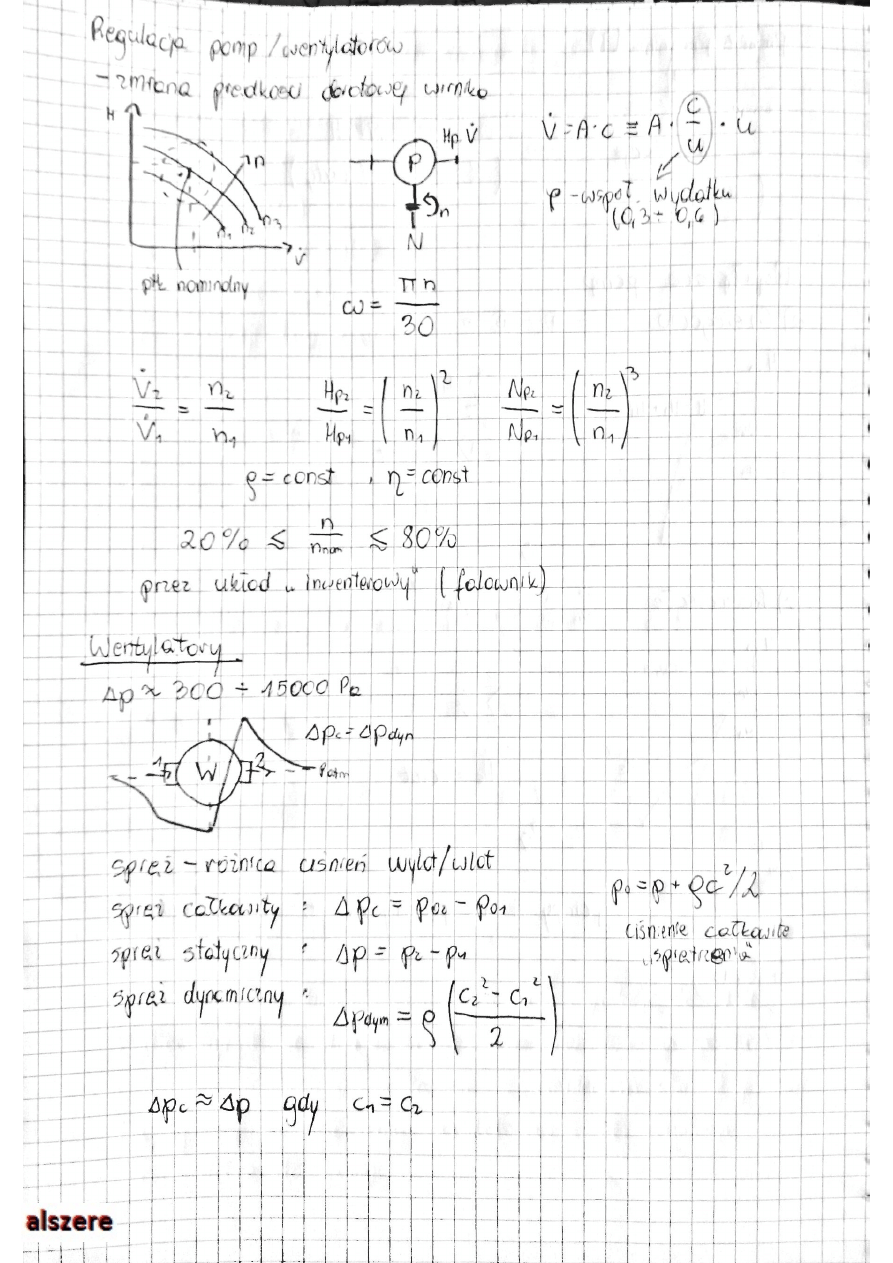 Regulacja pomp/wentylatorów
- zmiana prędkości obrotowej wirnika
H
n
n₁ n₂ n₃
V̇
pkt nominalny
Hp V̇
P
n
N
V̇ = A·c ≡ A · c/u · u
φ - współ. wydatku
(0,3 ÷ 0,6)
ω = πn/30
V̇₂/V̇₁ = n₂/n₁ Hp₂/Hp₁ = (n₂/n₁)² Np₂/Np₁ = (n₂/n₁)³
ρ = const , η = const
20% ≤ n/nnom ≤ 80%
przez układ „inwenterowy" (falownik)
Wentylatory
Δp ≈ 300 ÷ 15000 Pa
Δpc = Δpdyn
1 W 2
Patm
spręż - różnica ciśnień wylot/wlot
spręż całkowity : Δpc = p02 - p01
spręż statyczny : Δp = p₂ - p₁
spręż dynamiczny :
Δpdym = ρ ((c₂² - c₁²)/2)
p₀ = p + ρc²/2
ciśnienie całkowite
„spiętrzenia"
Δpc ≈ Δp gdy c₁ = c₂
alszere